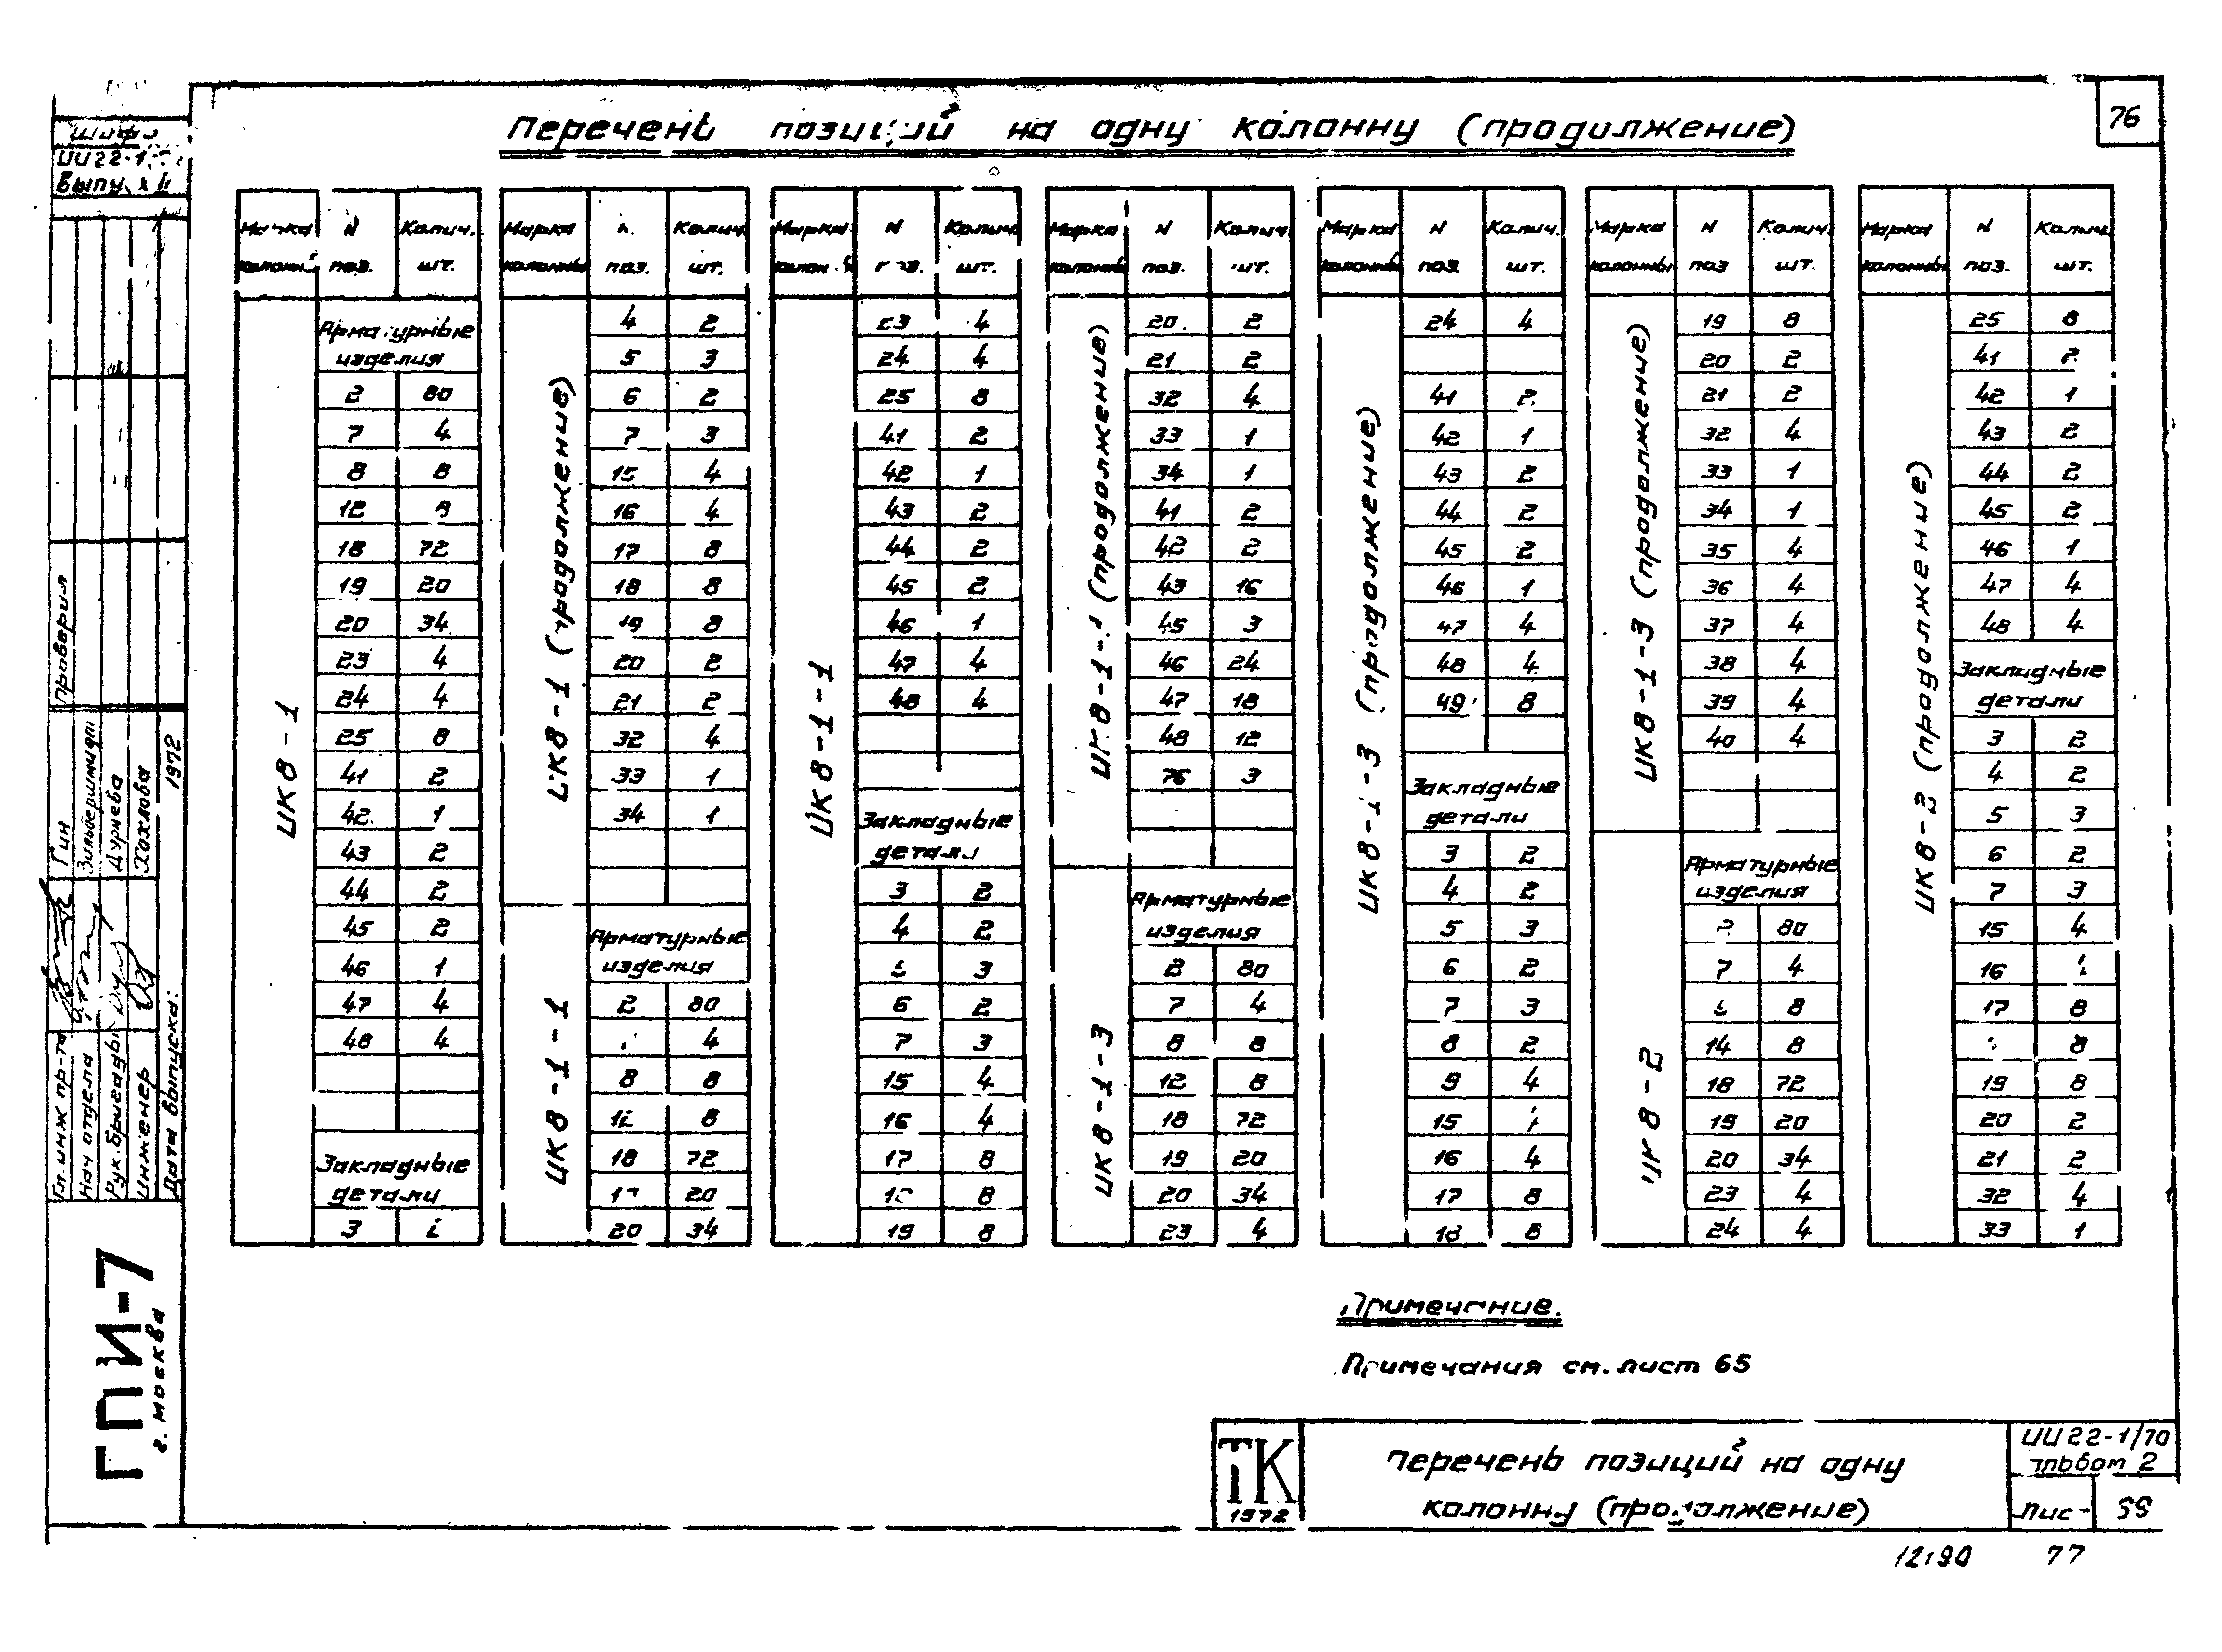 76
Перечень позиций на одну колонну (продолжение)
Марка колонны N поз. Колич. шт.
ИК8-1
Арматурные изделия
2 80
7 4
8 8
12 8
18 72
19 20
20 34
23 4
24 4
25 8
41 2
42 1
43 2
44 2
45 2
46 1
47 4
48 4
Закладные детали
3
Марка колонны поз. Колич. шт.
ИК8-1 (продолжение)
4 2
5 3
6 2
7 3
15 4
16 4
17 8
18 8
19 8
20 2
21 2
32 4
33 1
34 1
ИК8-1-1
Арматурные изделия
2 80
4
8 8
12 8
18 72
20
20 34
Марка N Колич. шт.
ИК8-1-1
23 4
24 4
25 8
41 2
42 1
43 2
44 2
45 2
46 1
47 4
48 4
Закладные детали
3 2
4 2
3
6 2
7 3
15 4
16 4
17 8
8
19 8
Марка колонны N поз. Колич. шт.
ИК8-1-1 (продолжение)
20 2
21 2
32 4
33 1
34 1
41 2
42 2
43 16
45 3
46 24
47 18
48 12
76 3
ИК8-1-3
Арматурные изделия
2 80
7 4
8 8
12 8
18 72
19 20
20 34
23 4
Марка колонны N поз. Колич. шт.
ИК8-1-3 (продолжение)
24 4
41 2
42 1
43 2
44 2
45 2
46 1
47 4
48 4
49 8
Закладные детали
3 2
4 2
5 3
6 2
7 3
8 2
9 4
15
16 4
17 8
18 8
Марка колонны N поз Колич. шт.
ИК8-1-3 (продолжение)
19 8
20 2
21 2
32 4
33 1
34 1
35 4
36 4
37 4
38 4
39 4
40 4
ИК8-2
Арматурные изделия
2 80
7 4
8
14 8
18 72
19 20
20 34
23 4
24 4
Марка колонны N поз. Колич. шт.
ИК8-2 (продолжение)
25 8
41 2
42 1
43 2
44 2
45 2
46 1
47 4
48 4
Закладные детали
3 2
4 2
5 3
6 2
7 3
15 4
16
17 8
8
19 8
20 2
21 2
32 4
33 1
Примечание.
Примечания см. лист 65
ТК
1972
Перечень позиций на одну
колонну (продолжение)
ИИ22-1/70
альбом 2
Лист
12190 77
Шифр
проверил
Гл. инж пр-та Гин
Нач отдела
Рук. бригады Дурнева
Инженер Хохлова
Дата выпуска: 1972
ГПИ-7
г. москва